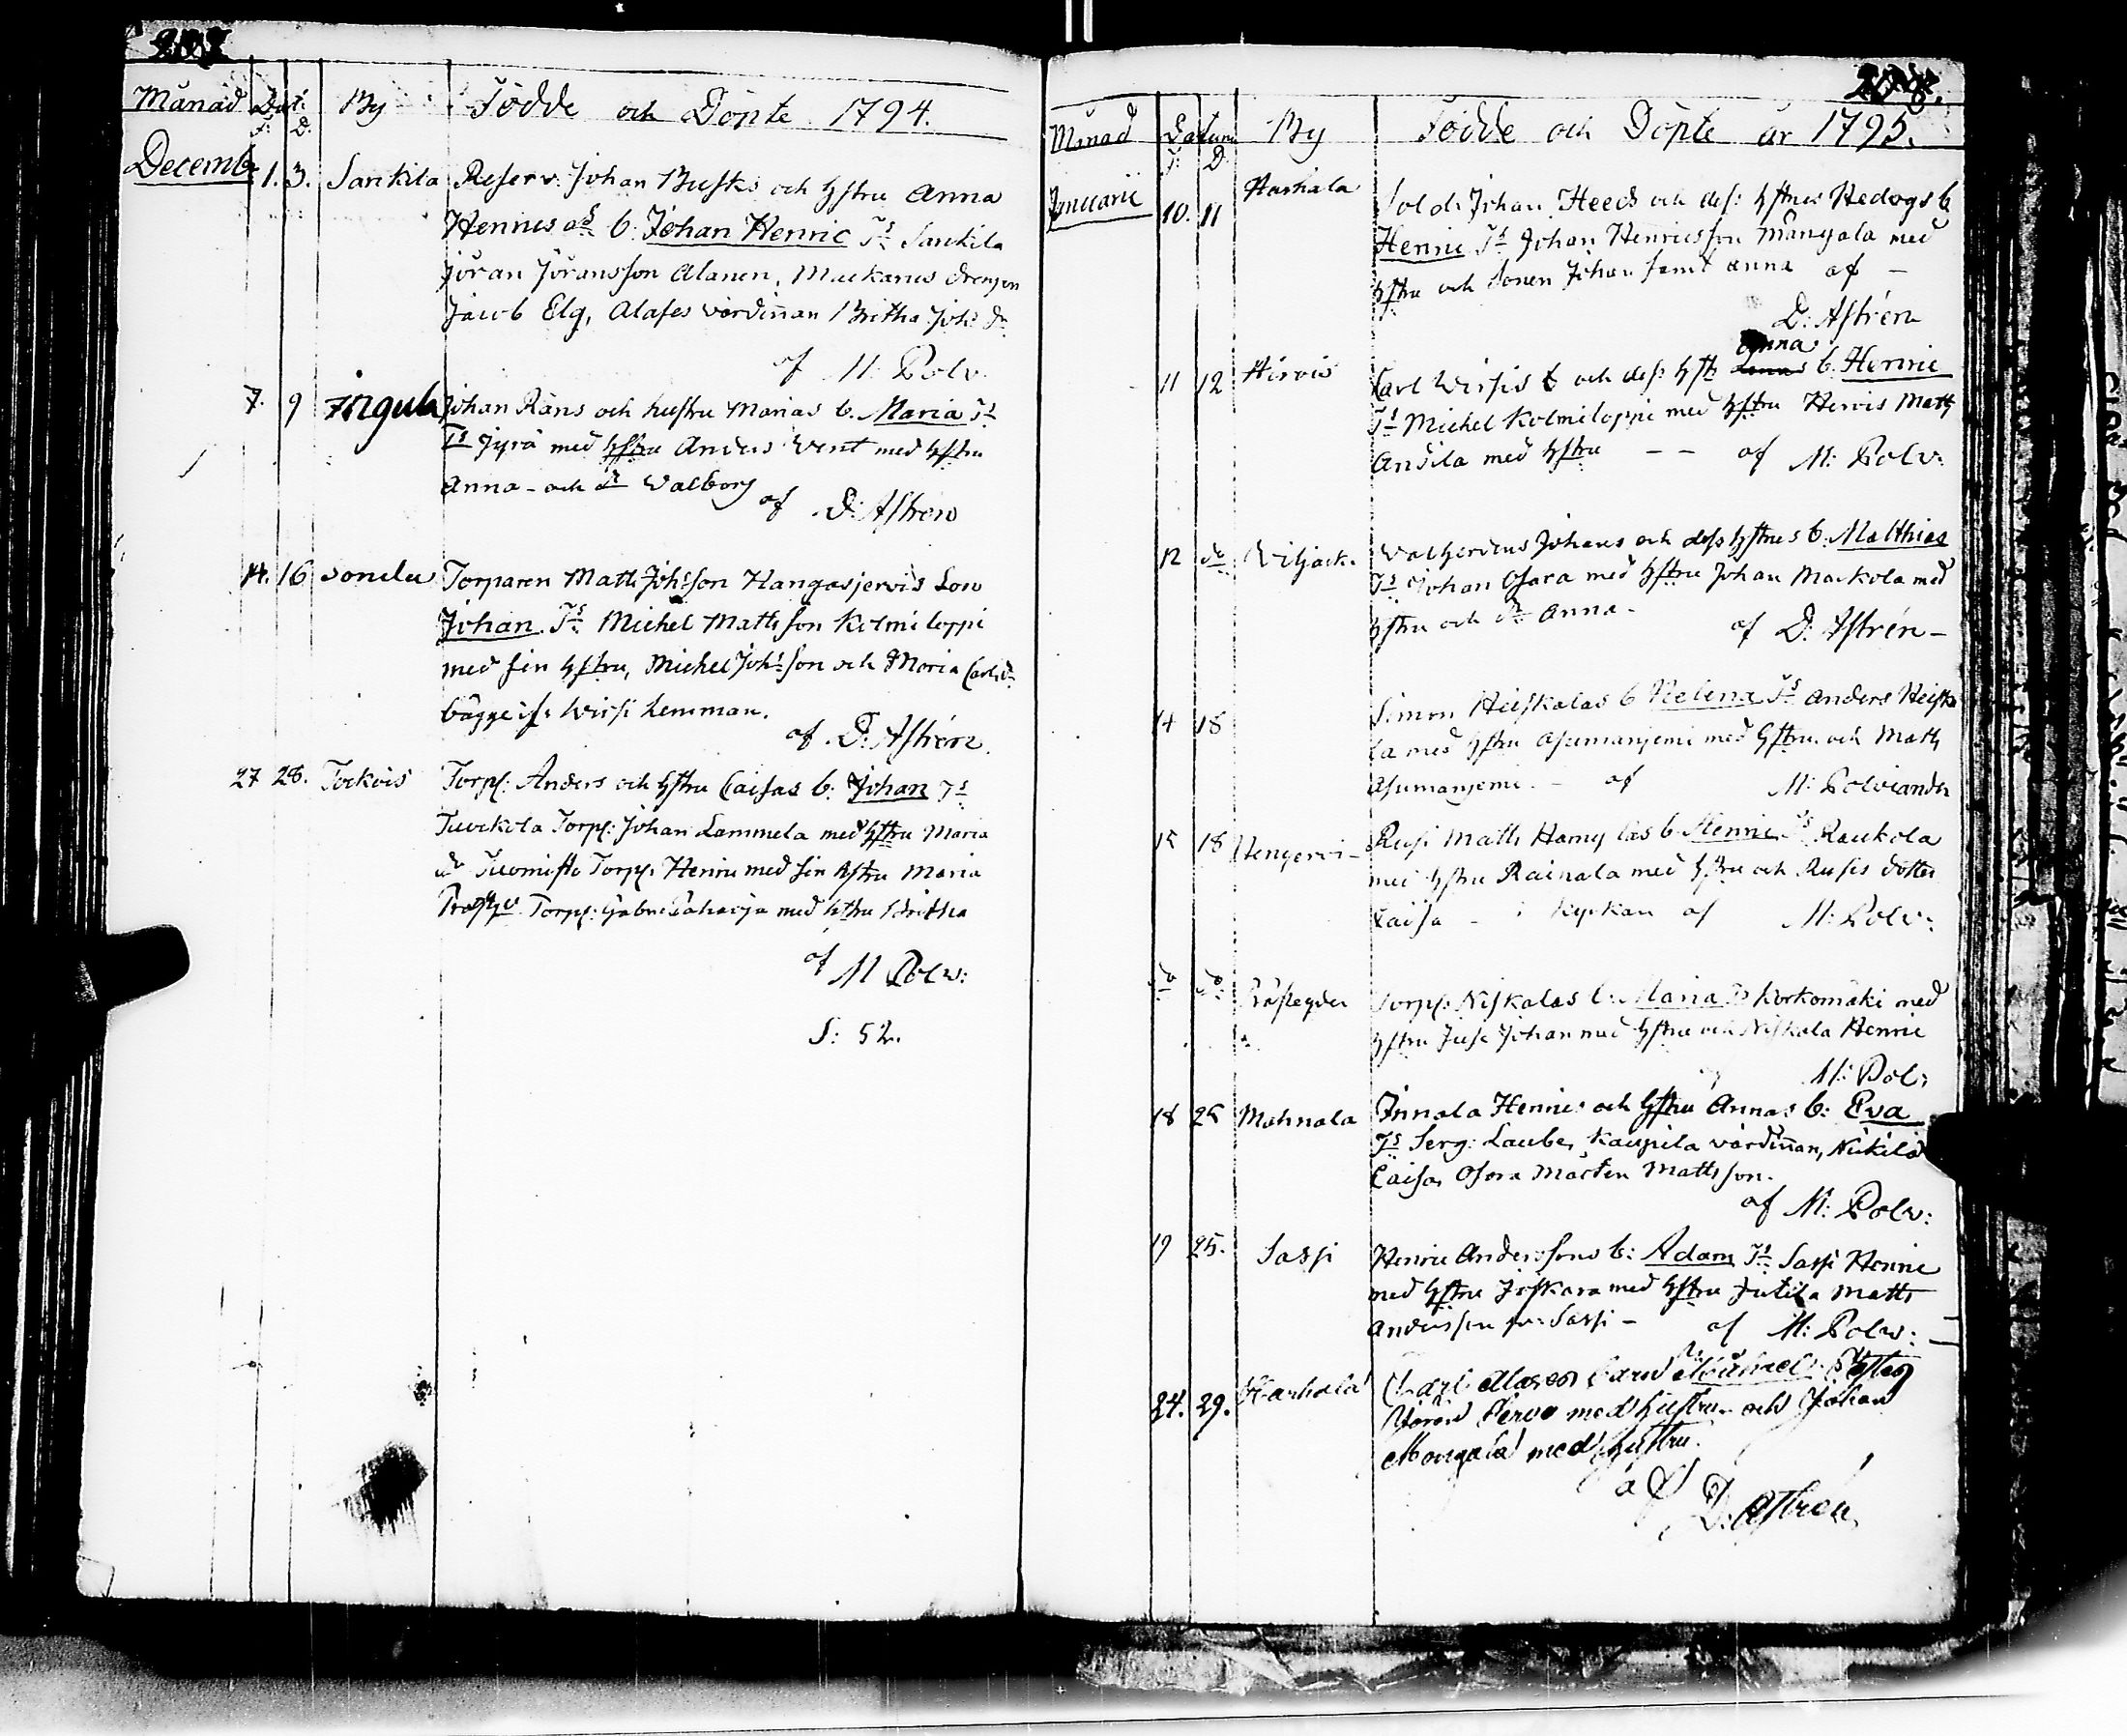 Månad Dat: By Födde och Döpte 1794.
F: D.
Decemb. 1. 3. Sankila Reserv: Johan Busks och hstru Anna
Henrics dr b: Johan Henric Ts Sankila
Jöran Jöransson Alanen, Mackanus drengen
Jacob Elg, Alases värdinnan Britha Joh: dr
af M: Polv.
7. 9 Johan Räns och hustru Marias b. Maria Ts
Ts Jyrä med hstru Anders Vent med hstru
Anna - och dr Walborg
af D: Astren
14. 16 Torparen Matts Johsson Hangasjervis Son
Johan. Ts Michel Mattsson Kolmiloppi
med sin hstru, Michel Johsson och Maria Carlsdr
bägge ifr: Wirsi hemman.
af D: Astrén.
27 28. Torkois Torp: Anders och hstru Caisas b: Johan Ts
Torp: Johan Lammela med hstru Maria
Tuomisto Torp: Henric med sin hstru Maria
Torp: med hstru Britha
af M Polv:
S: 52.
Månad Datum By Födde och Döpte år 1795.
F: D
Januarii 10. 11 Harhala Sold: Johan Heed och dess hstrus Hedvigs b
Henric Ts Johan Henricsson Mångala med
hstru och Sonen Johan samt Anna af -
D: Astrén
Anna
11 12 Hirvis Carl Wirsis b och dess hstr b. Henric
Ts Michel Kolmiloppi med hstru Hervis Matts
Andila med hstru - - af M: Polv:
12 do Viljack. Johans och dess hstrus b: Matthias
Ts Johan Osara med hstru Johan Mackola med
hstru och dr Anna - af D: Astrén -
14 18 Simon Heiskalas b Helena Ts Anders Heiska
la med hstru Asumanjemi med hstru och Matts
Asumanjemi. - af M: Polviander
15 18 Matts b. Henric Ts Raukola
med hstru Rainala med hstru och Rusis dotter
Caisa - i Kyrkan af M: Polv:
do do Torp: Niskalas b: Maria Ts Korkomäki med
hstru Juse Johan med hstru och Niskala Henric
M: Pol:
18 25 Mahnala Innala Henrics och hstru Annas b: Eva
Ts Serg: Laube, Kaupila värdinnan, Nickilä
Caisa, Osara Mårten Mattsson.
af M: Polv:
19 25. Sassi Henric Anderssons b: Adam Ts Sassi Henric
med hstru Jöskara med hstru Jutila Matts
Andersson fr: Sassi - af M: Polv:
24. 29. Harhala Carl Alases barn Michael
Jöran Pervo med hustru och Johan
Mongala med hustru.
af D: Astren